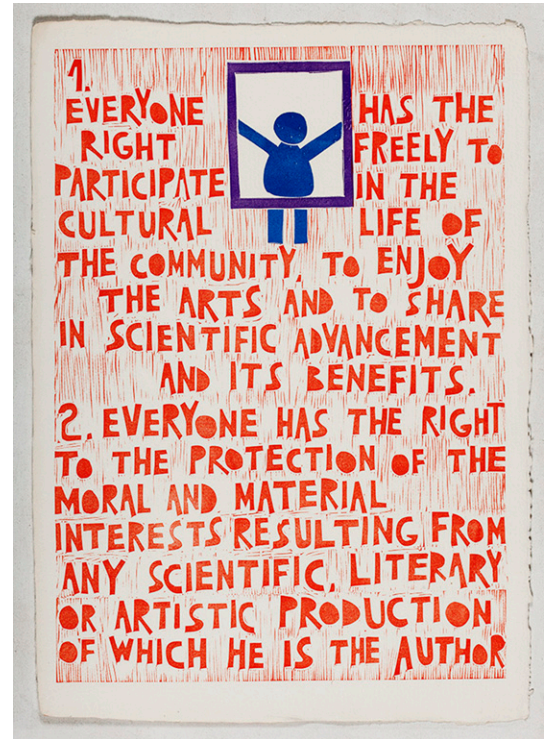 1.
EVERYONE HAS THE
RIGHT FREELY TO
PARTICIPATE IN THE
CULTURAL LIFE OF
THE COMMUNITY, TO ENJOY
THE ARTS AND TO SHARE
IN SCIENTIFIC ADVANCEMENT
AND ITS BENEFITS.
2. EVERYONE HAS THE RIGHT
TO THE PROTECTION OF THE
MORAL AND MATERIAL
INTERESTS RESULTING FROM
ANY SCIENTIFIC, LITERARY
OR ARTISTIC PRODUCTION
OF WHICH HE IS THE AUTHOR